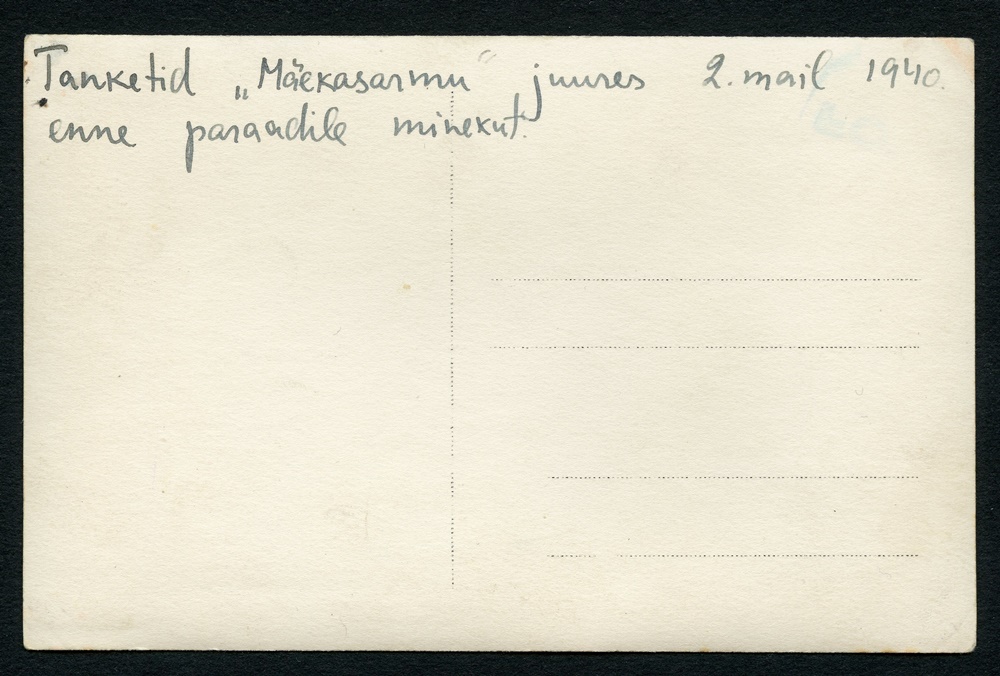 Tanketid „Mäekasarmu“ juures 2. mail 1940.
enne paraadile minekut.